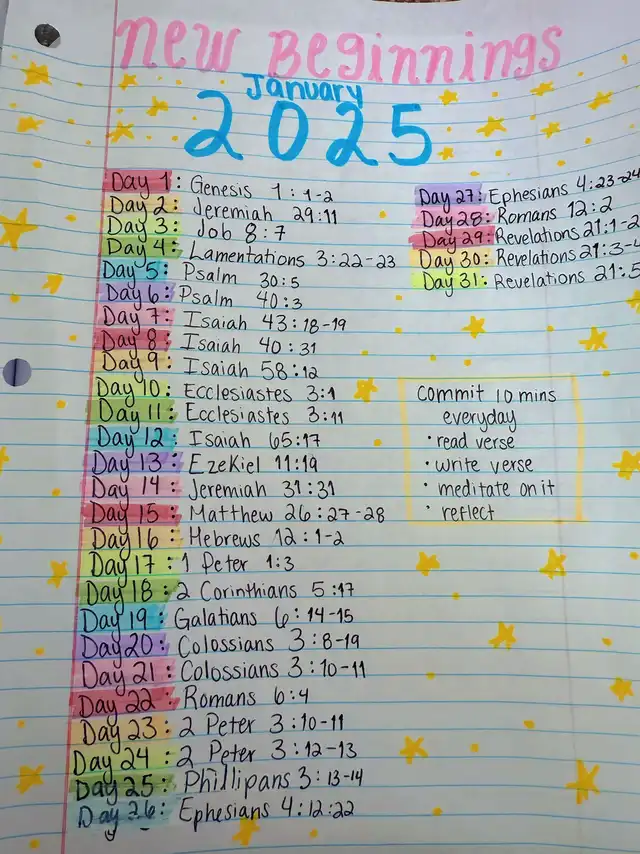 New Beginnings
January
2025
Day 1: Genesis 1:1-2
Day 2: Jeremiah 29:11
Day 3: Job 8:7
Day 4: Lamentations 3:22-23
Day 5: Psalm 30:5
Day 6: Psalm 40:3
Day 7: Isaiah 43:18-19
Day 8: Isaiah 40:31
Day 9: Isaiah 58:12
Day 10: Ecclesiastes 3:1
Day 11: Ecclesiastes 3:11
Day 12: Isaiah 65:17
Day 13: Ezekiel 11:19
Day 14: Jeremiah 31:31
Day 15: Matthew 26:27-28
Day 16: Hebrews 12:1-2
Day 17: 1 Peter 1:3
Day 18: 2 Corinthians 5:17
Day 19: Galatians 6:14-15
Day 20: Colossians 3:8-19
Day 21: Colossians 3:10-11
Day 22: Romans 6:4
Day 23: 2 Peter 3:10-11
Day 24: 2 Peter 3:12-13
Day 25: Phillipans 3:13-14
Day 26: Ephesians 4:12:22
Day 27: Ephesians 4:23-24
Day 28: Romans 12:2
Day 29: Revelations 21:1-2
Day 30: Revelations 21:3-4
Day 31: Revelations 21:5
Commit 10 mins
everyday
• read verse
• write verse
• meditate on it
• reflect